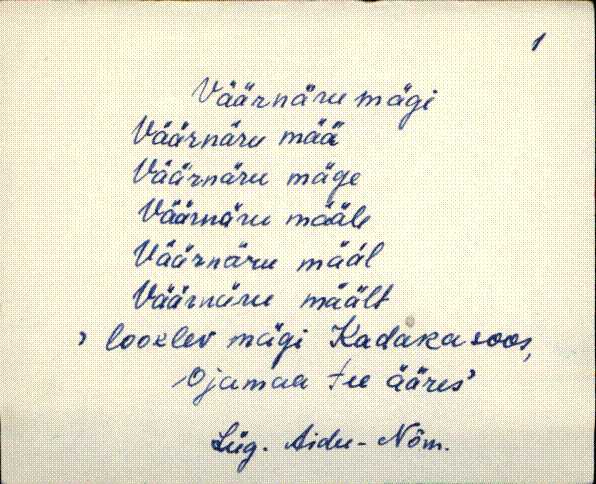 1
Väärnäru mägi
Väärnäru mää
Väärnäru mäge
Väärnäru määle
Väärnäru määl
Väärnäru mäält
› looklev mägi Kadakasoos,
Ojamaa tee ääres'
Lüg. Aidu-Nõm.